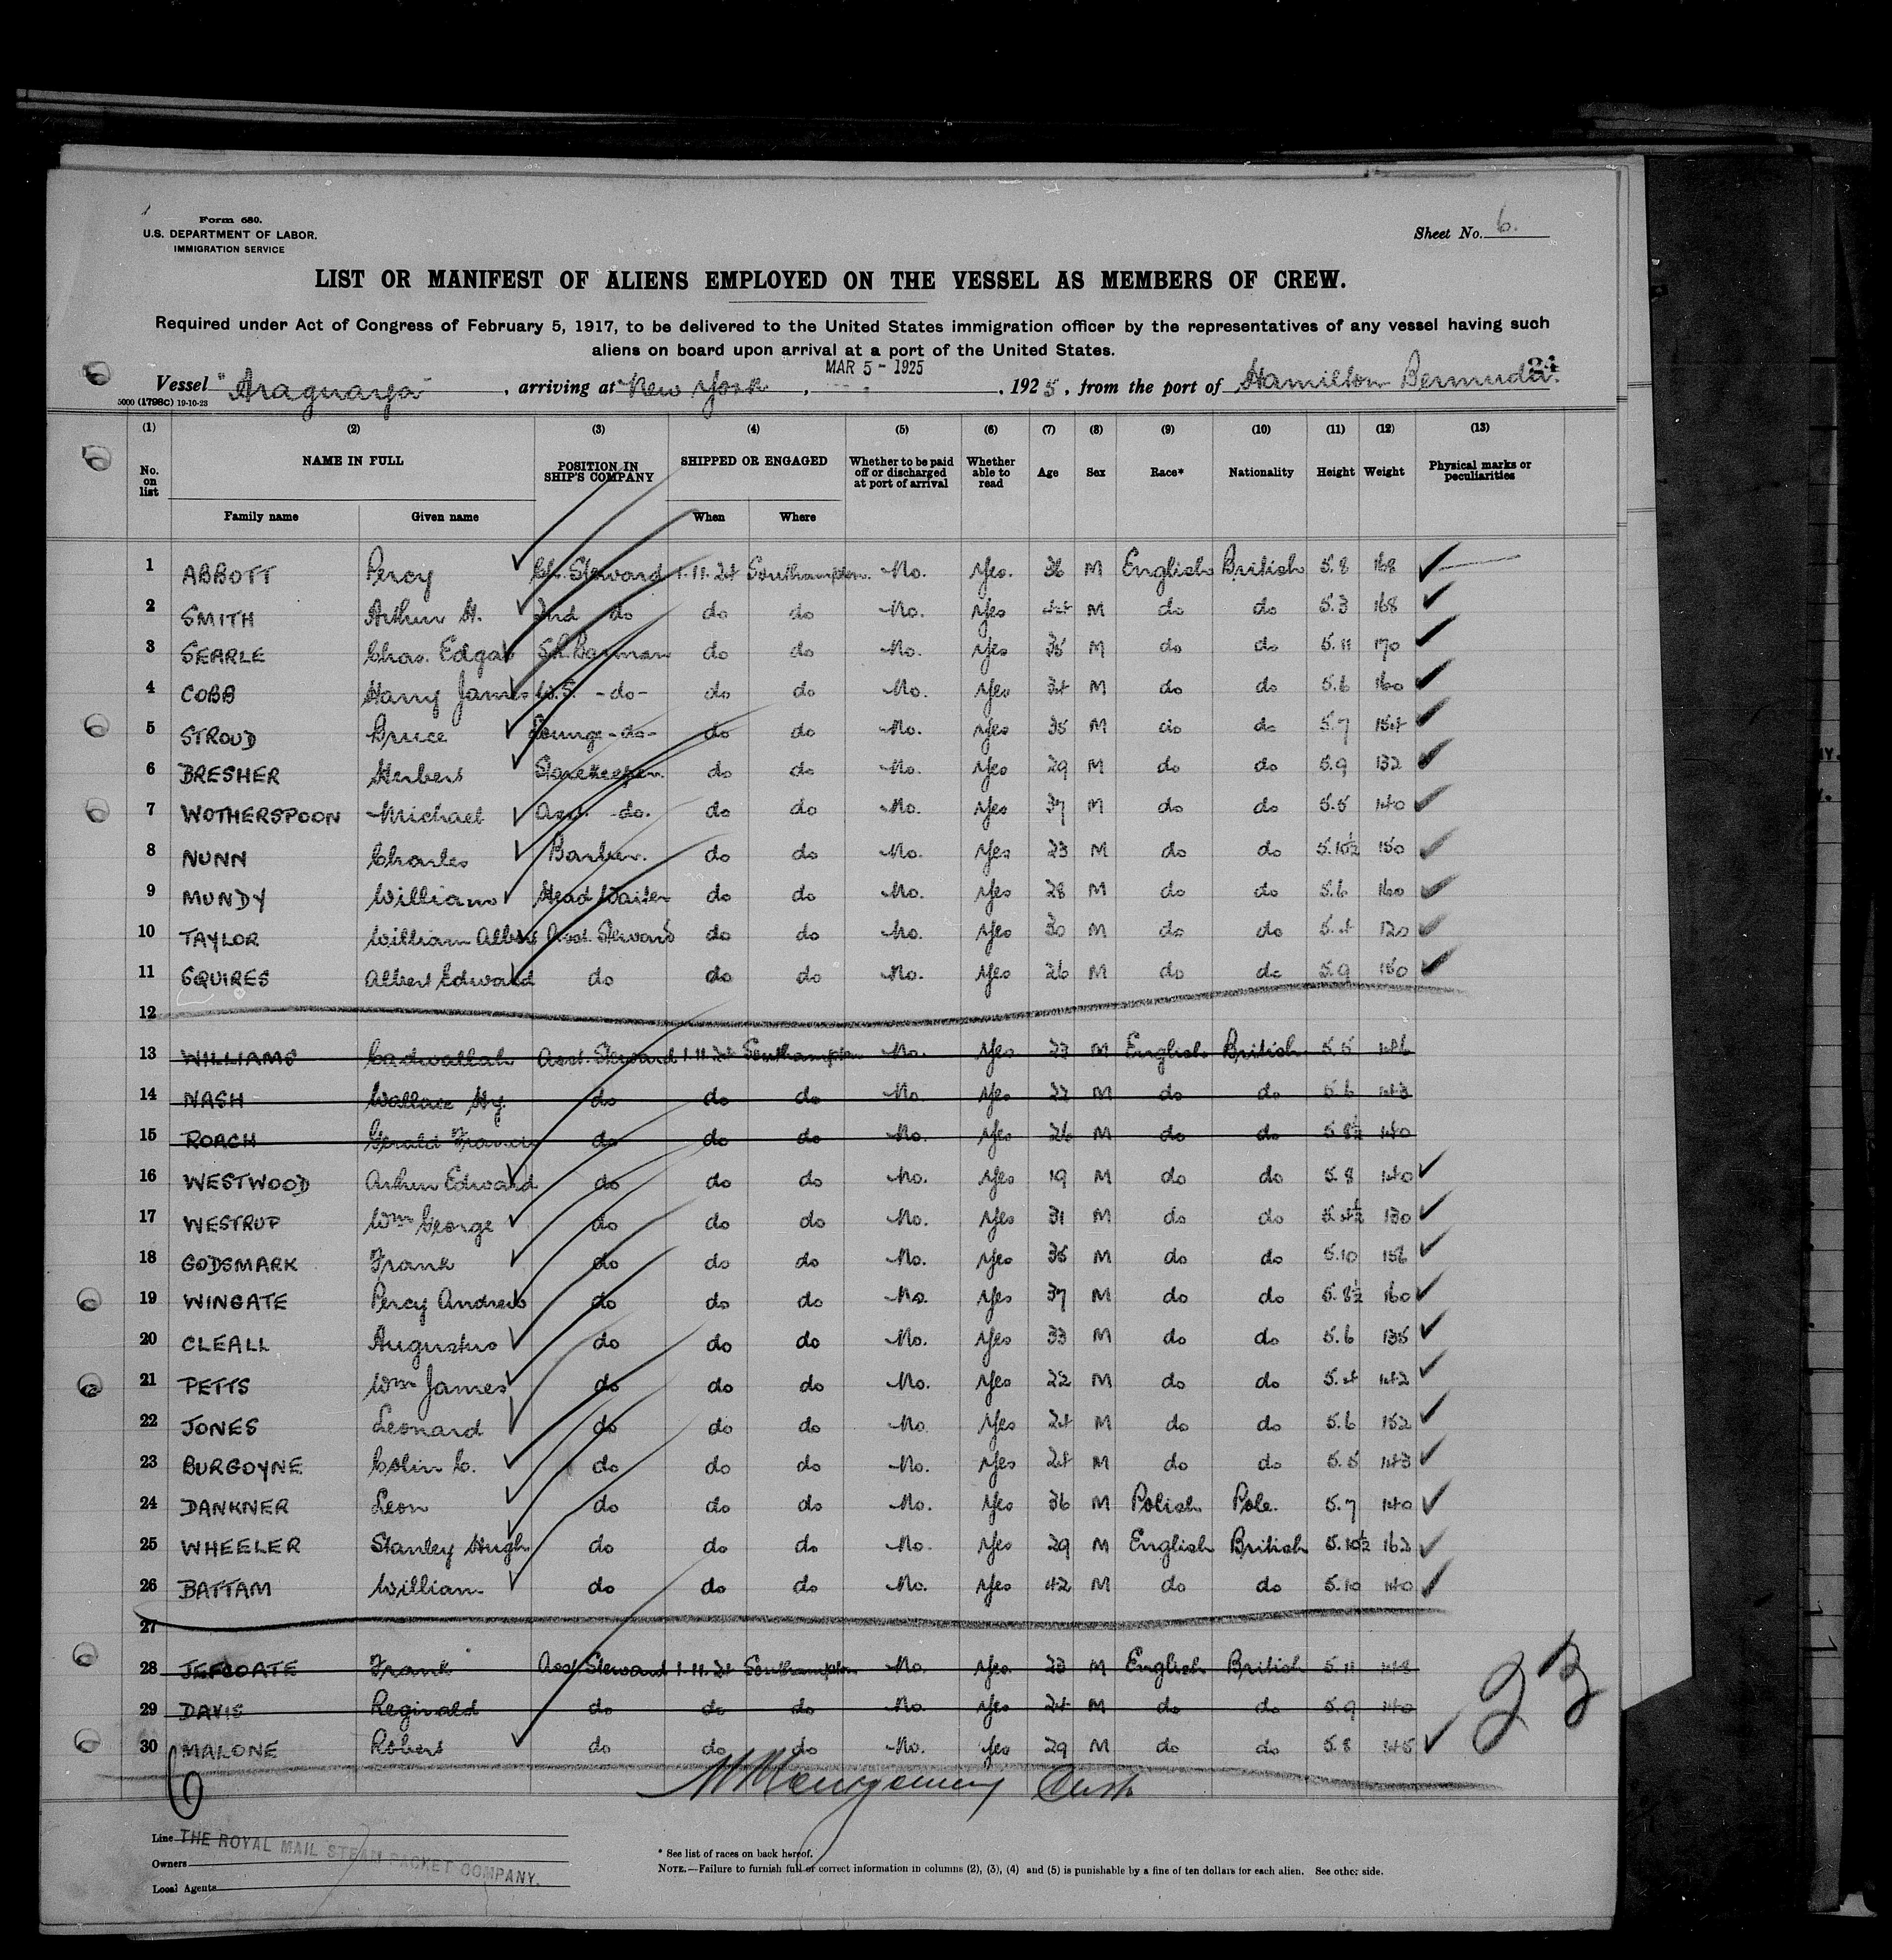 Form 680.
U.S. DEPARTMENT OF LABOR.
IMMIGRATION SERVICE
Sheet No. 6.
LIST OR MANIFEST OF ALIENS EMPLOYED ON THE VESSEL AS MEMBERS OF CREW.
Required under Act of Congress of February 5, 1917, to be delivered to the United States immigration officer by the representatives of any vessel having such
aliens on board upon arrival at a port of the United States.
MAR 5 - 1925
Vessel "Araguaya", arriving at New York, , 1925, from the port of Hamilton Bermuda.
5000 (1798C) 19-10-23
(1) (2) (3) (4) (5) (6) (7) (8) (9) (10) (11) (12) (13)
No. on list NAME IN FULL POSITION IN SHIP'S COMPANY SHIPPED OR ENGAGED Whether to be paid off or discharged at port of arrival Whether able to read Age Sex Race* Nationality Height Weight Physical marks or peculiarities
Family name Given name When Where
1 ABBOTT Percy Ch. Steward 1.11.24 Southampton. No. Yes. 36 M English British 5.8 168
2 SMITH Arthur H. 2nd do do do No. Yes 44 M do do 5.3 168
3 SEARLE Chas. Edgar S.R. Barman do do No. Yes 35 M do do 5.11 170
4 COBB Harry James W.S. -do- do do No. Yes 34 M do do 5.6 160
5 STROUD Bruce Lounge -do- do do No. Yes 35 M do do 5.7 154
6 BRESHER Herbert Storekeeper. do do No. Yes 29 M do do 5.9 132
7 WOTHERSPOON Michael Asst. -do. do do No. Yes 37 M do do 5.5 140
8 NUNN Charles Barber. do do No. Yes 23 M do do 5.10½ 150
9 MUNDY William Head Waiter do do No. Yes 28 M do do 5.6 160
10 TAYLOR William Albert Asst. Steward do do No. Yes 30 M do do 5.4 120
11 SQUIRES Albert Edward do do do No. Yes 26 M do do 5.9 150
12
13 WILLIAMS Cadwallah Asst. Steward 1.11.24 Southampton No. Yes 27 M English British 5.5 146
14 NASH Wallace Hy. do do do No Yes 22 M do do 5.6 143
15 ROACH Gerald Francis do do do No. Yes 26 M do do 5.8½ 140
16 WESTWOOD Arthur Edward do do do No. Yes 19 M do do 5.8 140
17 WESTRUP Wm George do do do No. Yes 31 M do do 5.4½ 130
18 GODSMARK Frank do do do No. Yes 35 M do do 5.10 156
19 WINGATE Percy Andrew do do do No. Yes 37 M do do 5.8½ 160
20 CLEALL Augustus do do do No. Yes 33 M do do 5.6 135
21 PETTS Wm James do do do No. Yes 22 M do do 5.4 142
22 JONES Leonard do do do No. Yes 24 M do do 5.6 152
23 BURGOYNE Colin C. do do do No. Yes 24 M do do 5.5 143
24 DANKNER Leon do do do No. Yes 36 M Polish Pole. 5.7 140
25 WHEELER Stanley Hugh do do do No. Yes 29 M English British 5.10½ 162
26 BATTAM William do do do No. Yes 42 M do do 5.10 140
27
28 JEFCOATE Frank Asst Steward 1.11.24 Southampton No. Yes. 23 M English British 5.11 148
29 DAVIS Reginald do do do No. Yes 24 M do do 5.9 140
30 MALONE Robert do do do No. Yes 29 M do do 5.8 145
23
6
Line THE ROYAL MAIL STEAM PACKET COMPANY.
Owners
Local Agents
* See list of races on back hereof.
NOTE.—Failure to furnish full or correct information in columns (2), (3), (4) and (5) is punishable by a fine of ten dollars for each alien. See other side.